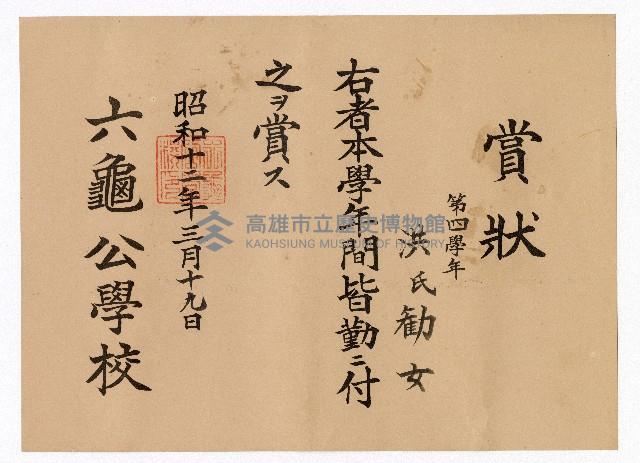 賞狀
第四學年
洪氏勸女
右者本學年間皆勤ニ付
之ヲ賞ス
昭和十二年三月十九日
六龜公學校
高雄市立歷史博物館
KAOHSIUNG MUSEUM OF HISTORY